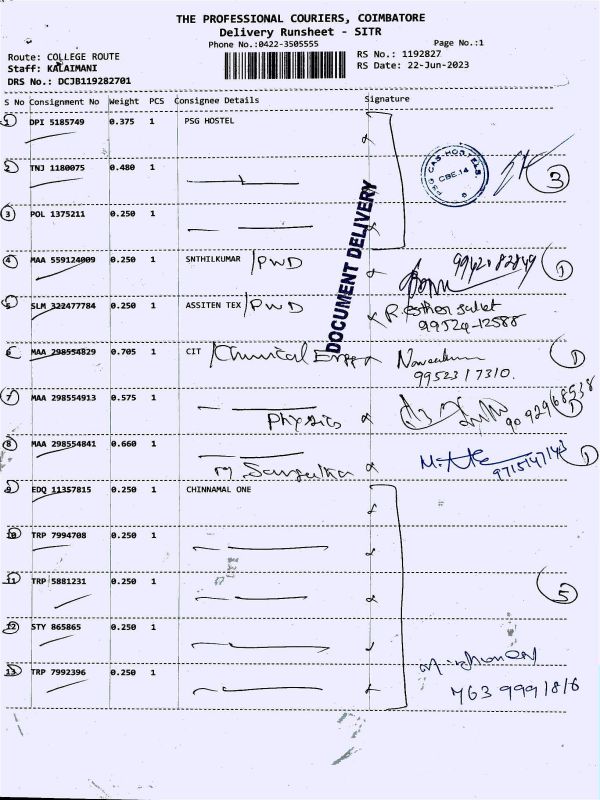 THE PROFESSIONAL COURIERS, COIMBATORE
Delivery Runsheet - SITR
Phone No.:0422-3505555 Page No.:1
Route: COLLEGE ROUTE RS No.: 1192827
Staff: KALAIMANI RS Date: 22-Jun-2023
DRS No.: DCJB119282701
S No Consignment No Weight PCS Consignee Details Signature
1 DPI 5185749 0.375 1 PSG HOSTEL
2 TNJ 1180075 0.480 1
PSG CAS HOSTELS. CBE.14
3
3 POL 1375211 0.250 1
DOCUMENT DELIVERY
4 MAA 559124009 0.250 1 SNTHILKUMAR /PWD 1
5 SLM 322477784 0.250 1 ASSITEN TEX /PWD R. esther
99524-12588
6 MAA 298554829 0.705 1 CIT 1
9952317310.
7 MAA 298554913 0.575 1 1
Physics 9092968538
8 MAA 298554841 0.660 1 1
9715147143
9 EDQ 11357815 0.250 1 CHINNAMAL ONE
10 TRP 7994708 0.250 1
11 TRP 5881231 0.250 1 5
12 STY 865865 0.250 1
13 TRP 7992396 0.250 1
763 9991816